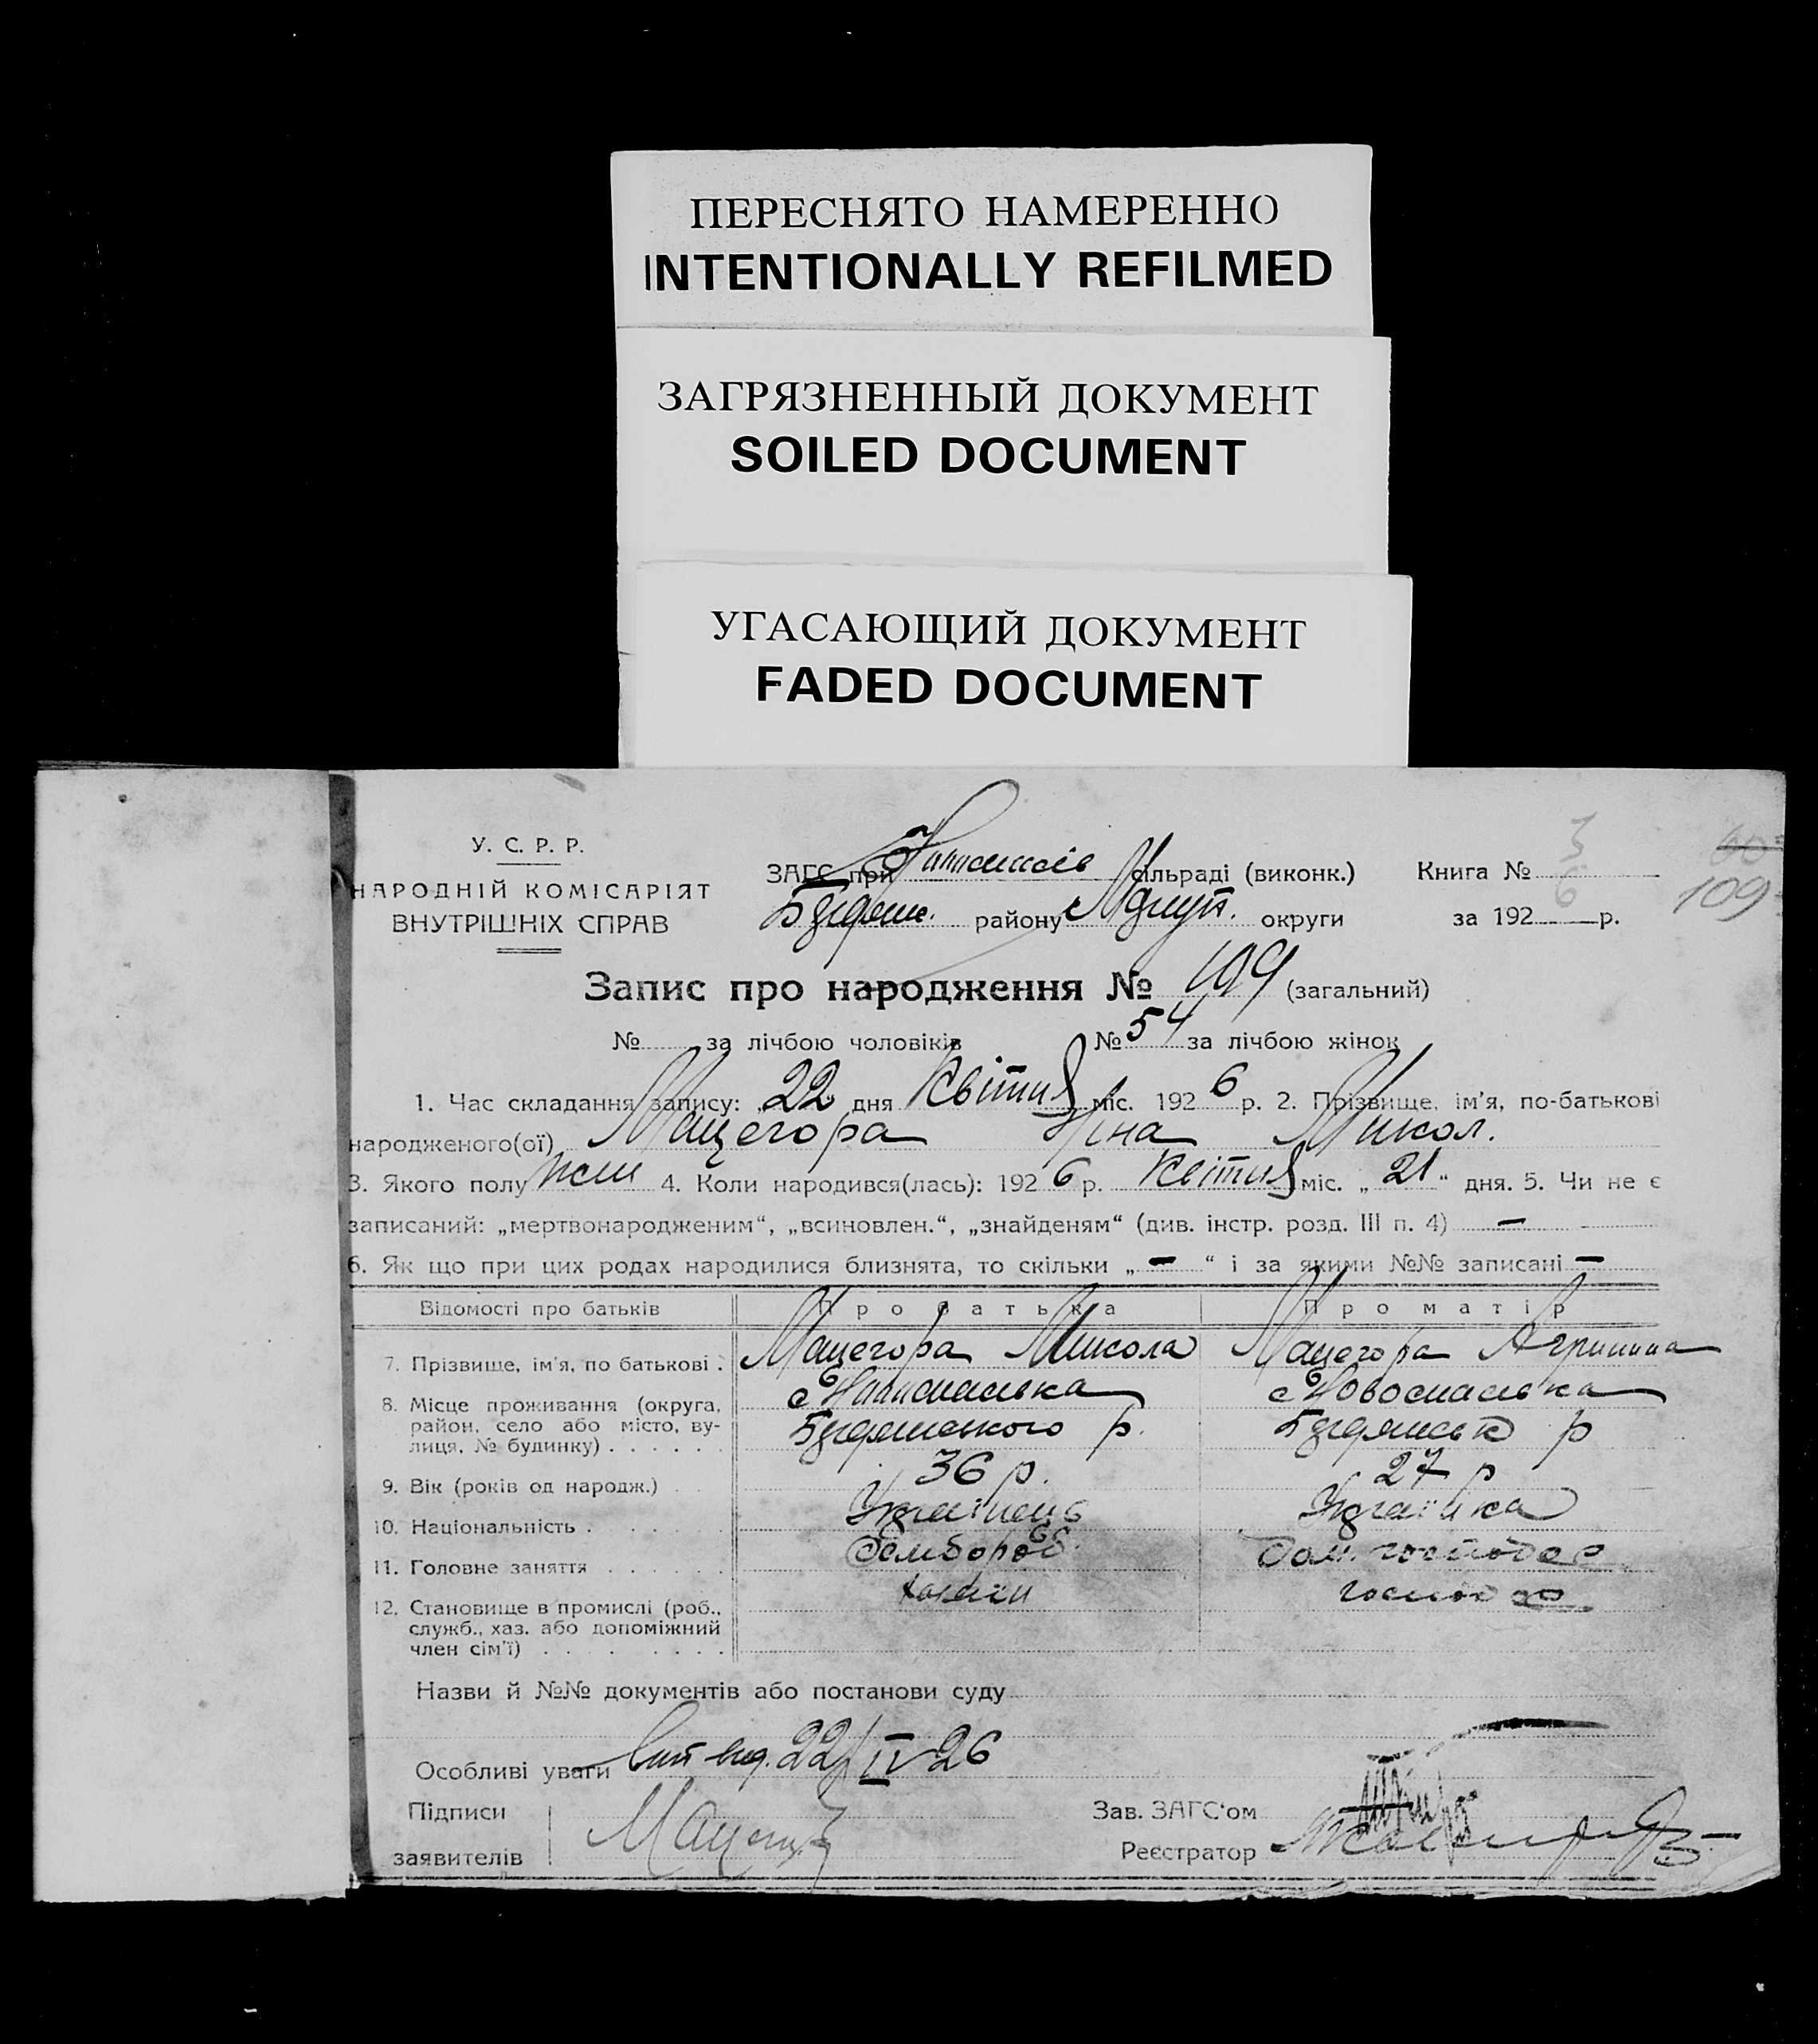 ПЕРЕСНЯТО НАМЕРЕННО
INTENTIONALLY REFILMED
ЗАГРЯЗНЕННЫЙ ДОКУМЕНТ
SOILED DOCUMENT
УГАСАЮЩИЙ ДОКУМЕНТ
FADED DOCUMENT
У. С. Р. Р.
НАРОДНІЙ КОМІСАРІЯТ
ВНУТРІШНІХ СПРАВ
ЗАГС при сільраді (виконк.) Книга № 3
району округи за 1926 р.
109
Запис про народження № 109 (загальний)
№ за лічбою чоловіків № 54 за лічбою жінок
1. Час складання запису: 22 дня Квітня міс. 1926 р. 2. Прізвище, ім'я, по-батькові
народженого(ої) Мацегора Ніна Микол.
3. Якого полу жін 4. Коли народився(лась): 1926 р. Квітня міс. „ 21 “ дня. 5. Чи не є
записаний: „мертвонародженим“, „всиновлен.“, „знайденям“ (див. інстр. розд. III п. 4) —
6. Як що при цих родах народилися близнята, то скільки „ — “ і за якими №№ записані —
Відомості про батьків Про батька Про матір
7. Прізвище, ім'я, по батькові . Мацегора Микола Мацегора Агрипина
8. Місце проживання (округа, район, село або місто, вулиця, № будинку) . . . . . с Новоспаська р. с Новоспаська р
9. Вік (років од народж.) . . 36 р. 27 р
10. Національність . . . . . Українець Українка
11. Головне заняття . . . . . . Хлібороб. Дом. господар
12. Становище в промислі (роб., служб., хаз. або допоміжний член сім'ї) . . . . . . . . хазяїн
Назви й №№ документів або постанови суду
Особливі уваги Вит вид. 22/IV 26
Підписи
заявителів
Зав. ЗАГС'ом
Реєстратор